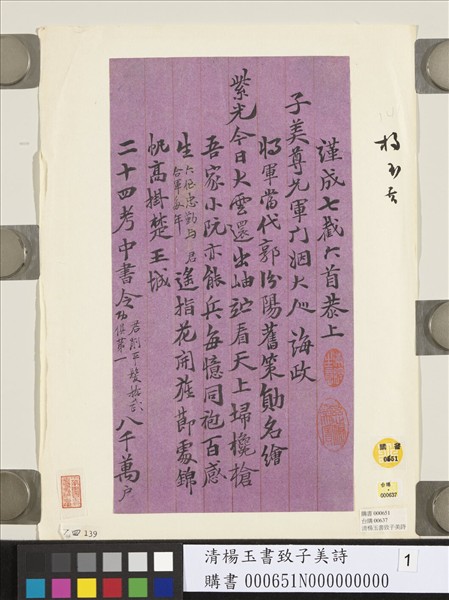 楊玉書
謹成七截六首恭上
子美尊兄軍門姻大人 誨政
將軍當代郭汾陽舊策勛名繪
紫光今日大雲還出岫試看天上掃欃槍
吾家小阮亦能兵每憶同袍百感
生六侄忠勤與君合軍數年遙指花開旌節處錦
帆高掛楚王城
二十四考中書令君剿平髮捻功俱第一八千萬戶
購書
0651
台購
000637
購書 000651
台購 00637
清楊玉書致子美詩
乙四 139
清楊玉書致子美詩
購書 000651N000000000
1